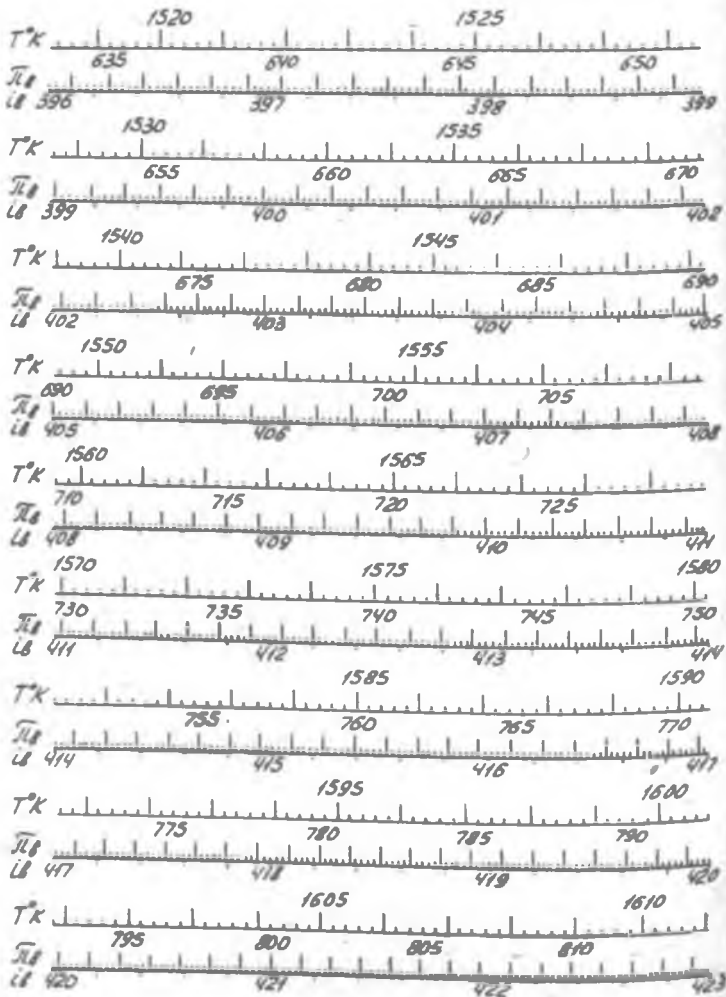 1520 1525
T°K
635 640 645 650
πв
iв 396 397 398 399
1530 1535
T°K
655 660 665 670
πв
iв 399 400 401 402
1540 1545
T°K
675 680 685 690
πв
iв 402 403 404 405
1550 1555
T°K
690 695 700 705
πв
iв 405 406 407 408
1560 1565
T°K
710 715 720 725
πв
iв 408 409 410 411
1570 1575 1580
T°K
730 735 740 745 750
πв
iв 411 412 413 414
1585 1590
T°K
755 760 765 770
πв
iв 414 415 416 417
1595 1600
T°K
775 780 785 790
πв
iв 417 418 419 420
1605 1610
T°K
795 800 805 810
πв
iв 420 421 422 423